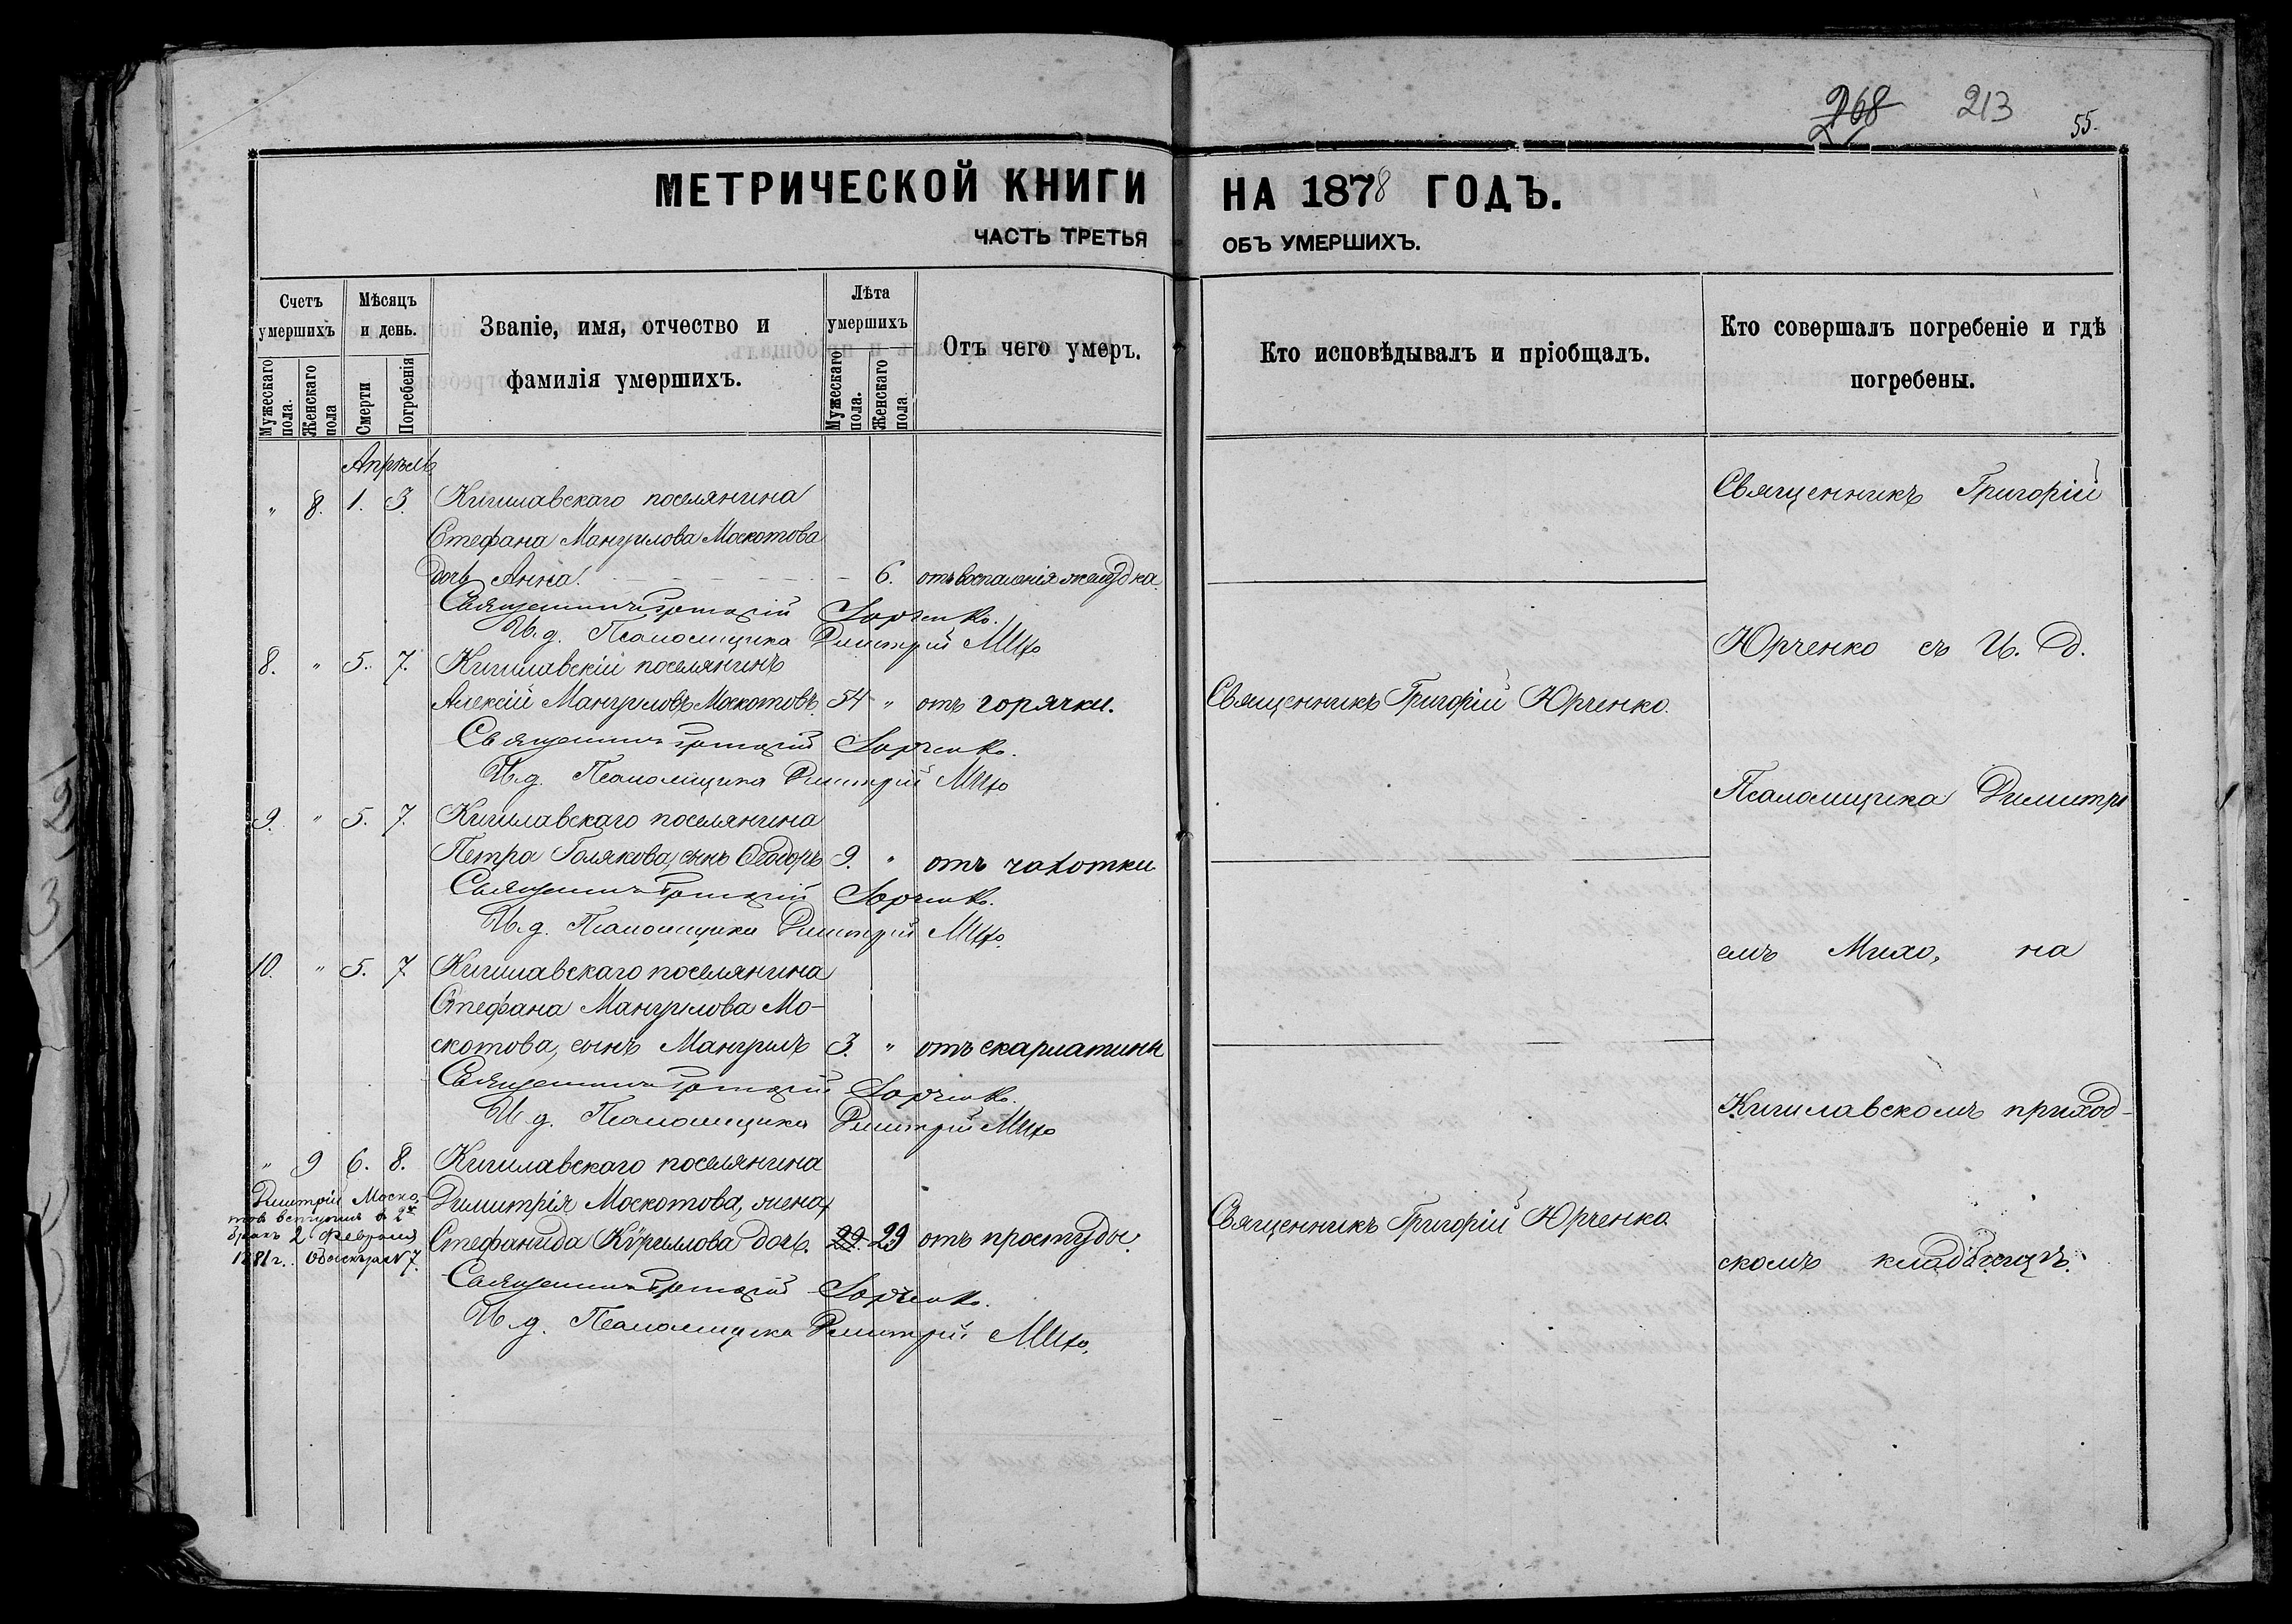 268 213 55.
МЕТРИЧЕСКОЙ КНИГИ НА 1878 ГОДЪ.
ЧАСТЬ ТРЕТЬЯ ОБЪ УМЕРШИХЪ.
Счетъ умершихъ
Мужескаго пола.
Женскаго пола
Мѣсяцъ и день.
Смерти
Погребенія
Званіе, имя, отчество и фамилія умершихъ.
Лѣта умершихъ
Мужескаго пола.
Женскаго пола
Отъ чего умеръ.
Кто исповѣдывалъ и пріобщалъ.
Кто совершалъ погребеніе и гдѣ погребены.
Апрѣль
" 8. 1. 3. Кигилавскаго поселянина
Стефана Мануилова Москотова
дочь Анна. 6. отъ воспаленія желудка.
Священникъ Григорій Юрченко.
И. д. Псаломщика Димитрій Михо
8. " 5. 7. Кигилавскій поселянинъ
Алексій Мануиловъ Москотовъ. 54 " отъ горячки. Священникъ Григорій Юрченко.
Священникъ Григорій Юрченко.
И. д. Псаломщика Димитрій Михо
9. " 5. 7. Кигилавскаго поселянина
Петра Голякова, сынъ Ѳеодоръ 9. " отъ чахотки
Священникъ Григорій Юрченко.
И. д. Псаломщика Димитрій Михо.
10. " 5. 7. Кигилавскаго поселянина
Стефана Мануилова Мо-
скотова, сынъ Мануилъ 3. " отъ скарлатины
Священникъ Григорій Юрченко.
И. д. Псаломщика Димитрій Михо
" 9 6. 8. Кигилавскаго поселянина
Димитрія Москотова, жена
Стефанида Кѵриллова дочь. 29. 29 отъ простуды. Священникъ Григорій Юрченко.
Священникъ Григорій Юрченко.
И. д. Псаломщика Димитрій Михо.
Димитрій Моско-
товъ вступилъ в 2й
бракъ 2 Февраля
1881 г. № 7.
Священникъ Григорій
Юрченко съ И. Д.
Псаломщика Димитрі
емъ Михо, на
Кигилавскомъ приход-
скомъ кладбищѣ.